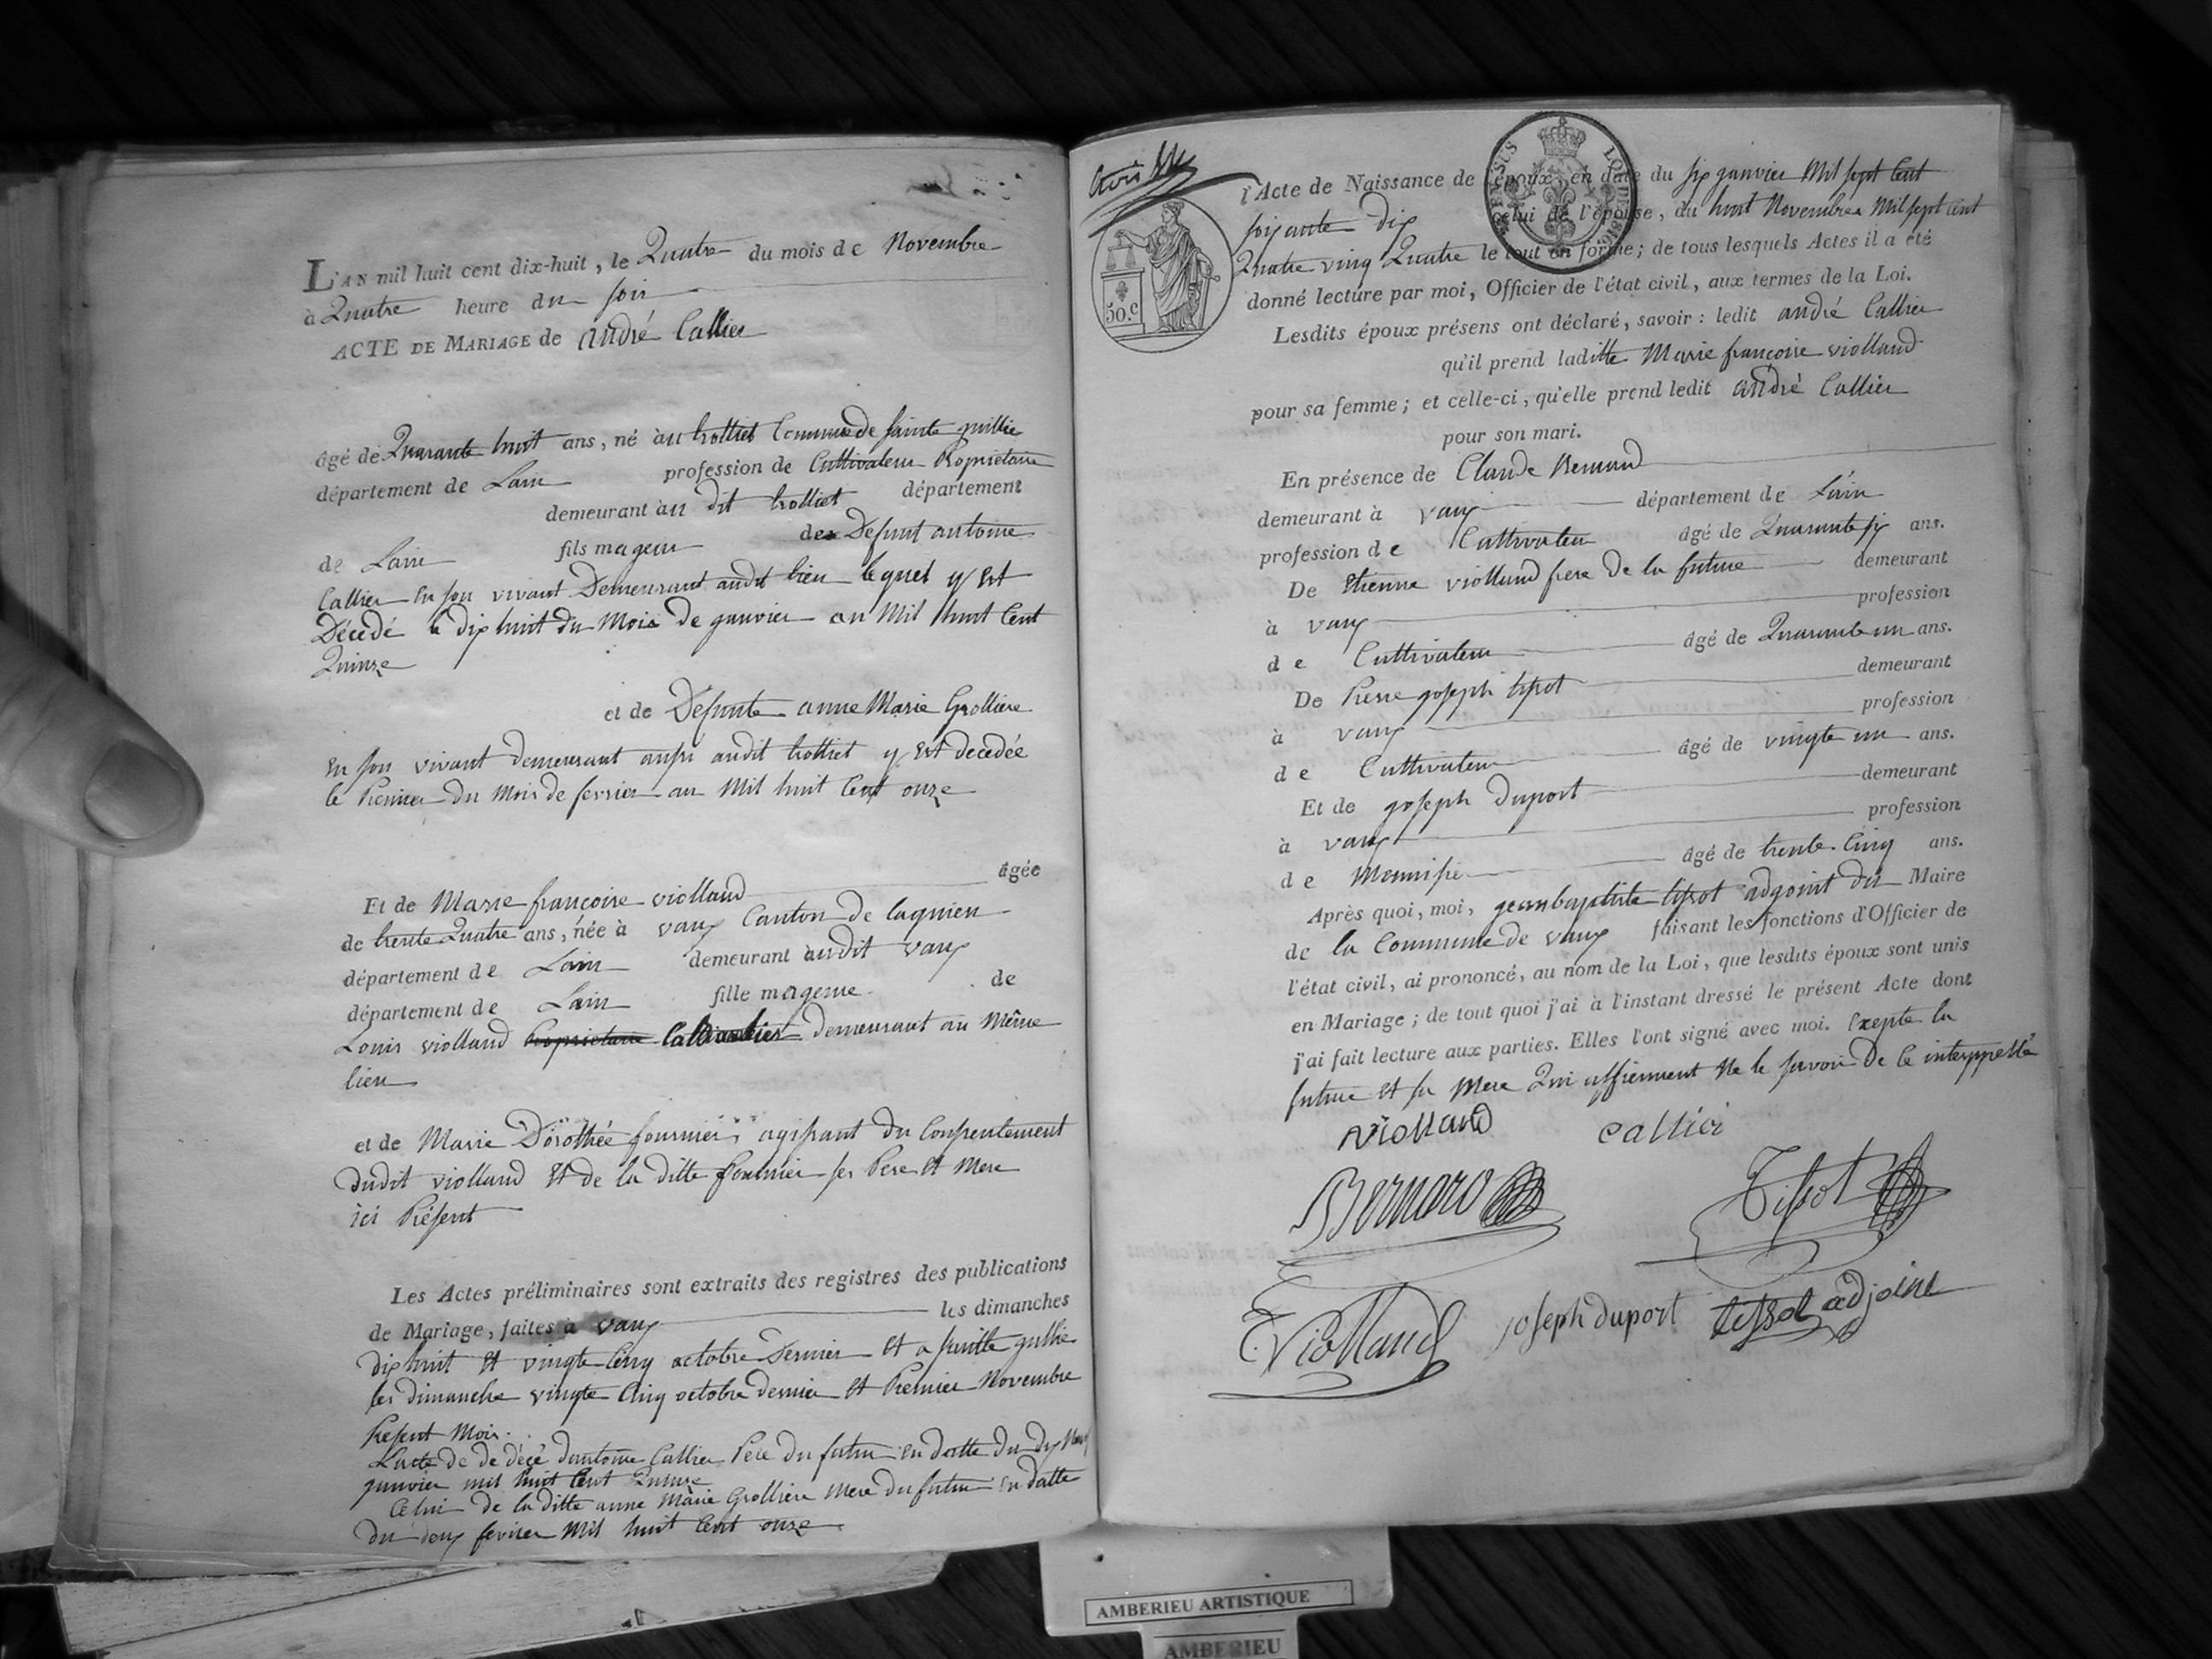 L'AN mil huit cent dix-huit, le Quatre du mois de Novembre
à Quatre heure du soir
ACTE DE MARIAGE de andré Callier
âgé de Quarante huit ans, né au trolliet Commune de sainte jullie
département de Lain profession de Cultivateur Propriétaire
demeurant au dit trolliet département
de Lain fils mageur de Defunt antoine
Callier En son vivant Demeurant audit lieu lequel y Est
Décedé le dix huit du Mois de ganvier an Mil huit Cent
Quinze
et de Defunte anne Marie Grolliere
En son vivant demeurant aussi audit trolliet y Est decedée
le Premier du Mois de fevrier an Mil huit Cent onze
Et de Marie françoise violland âgée
de trente Quatre ans, née à vaux Canton de lagnieu
département de Lain demeurant audit vaux
département de Lain fille mageure de
Louis violland demeurant au Même
lieu
et de Marie Dorothée fournier, agissant du Consentement
dudit violland Et de la ditte fournier ses Pere Et Mere
ici Présent
Les Actes préliminaires sont extraits des registres des publications
de Mariage, faites à vaux les dimanches
dix huit Et vingte Cinq octobre Dernier Et a sainte jullie
les dimanche vingte Cinq octobre dernier Et Premier Novembre
Présent Mois.
L'acte de de décé dantoine Callier Pere du futur en datte du dix Neuf
ganvier mil huit Cent Quinze
Celui de la ditte anne Marie Grolliere Mere du futur En datte
du deux fevrier Mil huit Cent onze
50.C
LOUIS
l'Acte de Naissance de l'époux, en date du six ganvier Mil sept Cent
soixante dix celui de l'épouse, du huit Novembre Mil sept Cent
Quatre ving Quatre le tout en forme; de tous lesquels Actes il a été
donné lecture par moi, Officier de l'état civil, aux termes de la Loi.
Lesdits époux présens ont déclaré, savoir : ledit andré Callier
qu'il prend laditte Marie françoise violland
pour sa femme; et celle-ci, qu'elle prend ledit andré Callier
pour son mari.
En présence de Claude Bernard
demeurant à vaux département de Lain
profession de Cultivateur âgé de Quarante six ans.
De Etienne violland frere de la future demeurant
à vaux profession
de Cultivateur âgé de Quarante un ans.
De Pierre goseph tissot demeurant
à vaux profession
de Cultivateur âgé de vingte un ans.
Et de goseph duport demeurant
à vaux profession
de Menuisier âgé de trente Cinq ans.
Après quoi, moi, gean baptiste tissot adgoint du Maire
de la Commune de vaux faisant les fonctions d'Officier de
l'état civil, ai prononcé, au nom de la Loi, que lesdits époux sont unis
en Mariage; de tout quoi j'ai à l'instant dressé le présent Acte dont
j'ai fait lecture aux parties. Elles l'ont signé avec moi. Exepte la
future Et sa Mere Qui affirment Ne le savoir De Ce interppellé
violland callier
Bernard Tissot
E. Violland joseph duport tissot adjoint
AMBERIEU ARTISTIQUE
AMBERIEU